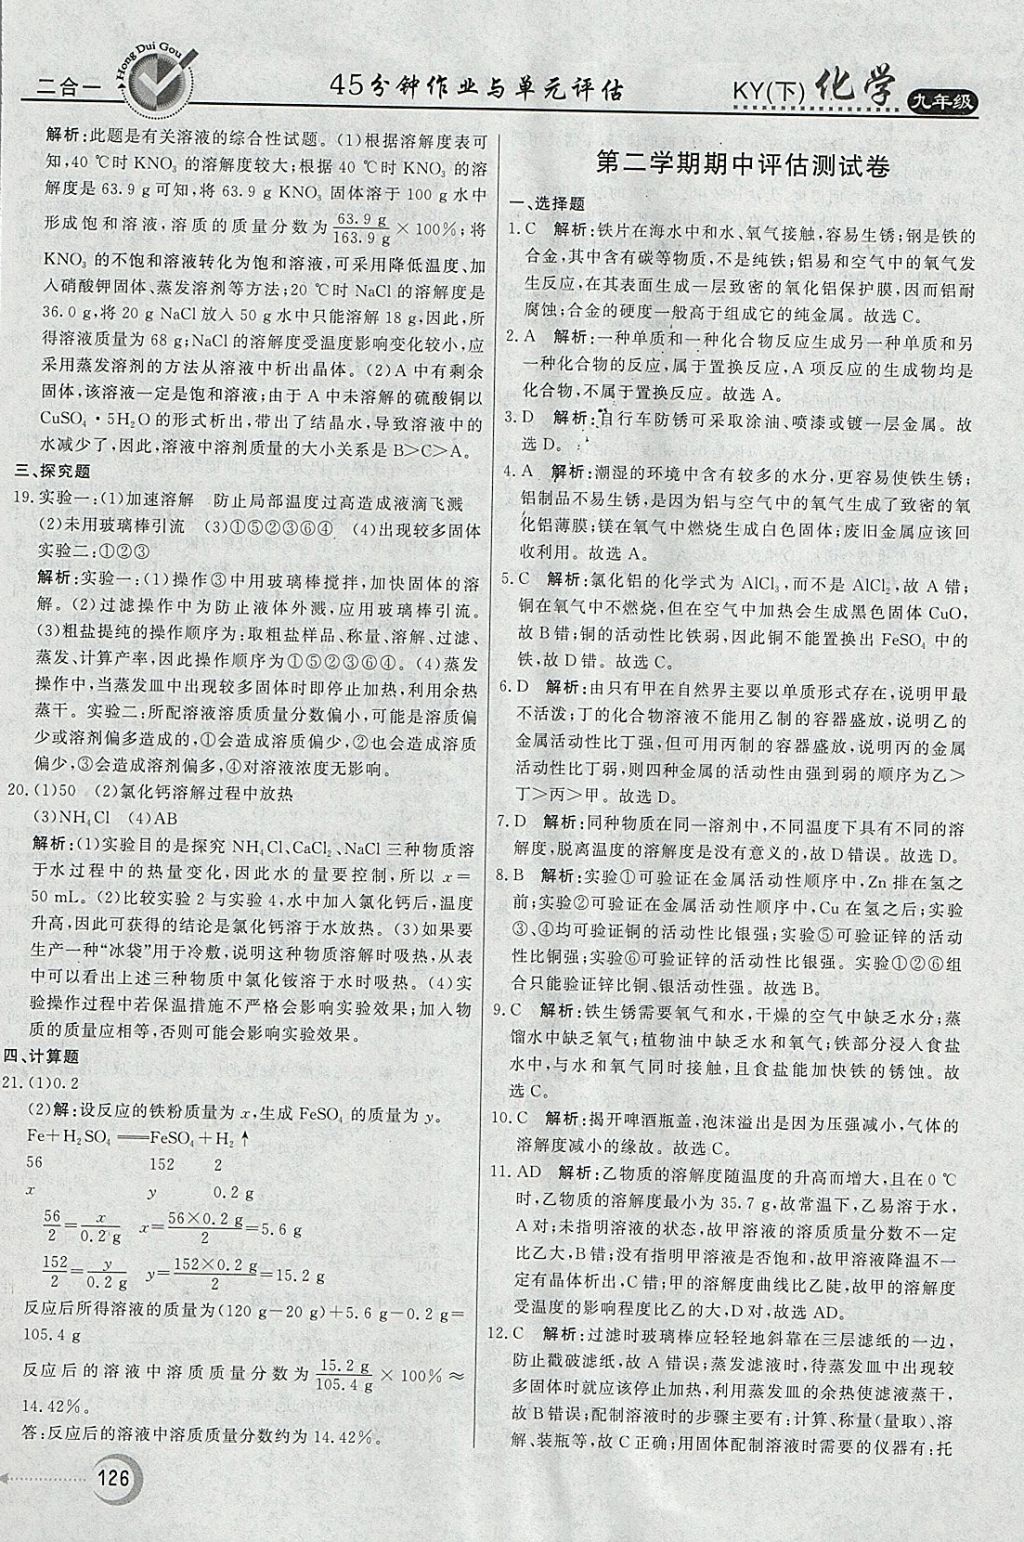 二合一
Hong Dui Gou
45分钟作业与单元评估
KY(下) 化学 九年级
解析:此题是有关溶液的综合性试题。(1)根据溶解度表可
知,40 ℃时 KNO₃ 的溶解度较大;根据 40 ℃时 KNO₃ 的溶
解度是 63.9 g 可知,将 63.9 g KNO₃ 固体溶于 100 g 水中
形成饱和溶液,溶质的质量分数为 63.9 g/163.9 g ×100%;将
KNO₃ 的不饱和溶液转化为饱和溶液,可采用降低温度、加
入硝酸钾固体、蒸发溶剂等方法;20 ℃时 NaCl 的溶解度是
36.0 g,将 20 g NaCl 放入 50 g 水中只能溶解 18 g,因此,所
得溶液质量为 68 g;NaCl 的溶解度受温度影响变化较小,应
采用蒸发溶剂的方法从溶液中析出晶体。(2)A 中有剩余
固体,该溶液一定是饱和溶液;由于 A 中未溶解的硫酸铜以
CuSO₄·5H₂O 的形式析出,带出了结晶水,导致溶液中的
水减少了,因此,溶液中溶剂质量的大小关系是 B>C>A。
三、探究题
19.实验一:(1)加速溶解 防止局部温度过高造成液滴飞溅
(2)未用玻璃棒引流 (3)①⑤②③⑥④ (4)出现较多固体
实验二:①②③
解析:实验一:(1)操作③中用玻璃棒搅拌,加快固体的溶
解。(2)过滤操作中为防止液体外溅,应用玻璃棒引流。
(3)粗盐提纯的操作顺序为:取粗盐样品、称量、溶解、过滤、
蒸发、计算产率,因此操作顺序为①⑤②③⑥④。(4)蒸发
操作中,当蒸发皿中出现较多固体时即停止加热,利用余热
蒸干。实验二:所配溶液溶质质量分数偏小,可能是溶质偏
少或溶剂偏多造成的,①会造成溶质偏少,②也会造成溶质
偏少,③会造成溶剂偏多,④对溶液浓度无影响。
20.(1)50 (2)氯化钙溶解过程中放热
(3)NH₄Cl (4)AB
解析:(1)实验目的是探究 NH₄Cl、CaCl₂、NaCl 三种物质溶
于水过程中的热量变化,因此水的量要控制,所以 x=
50 mL。(2)比较实验 2 与实验 4,水中加入氯化钙后,温度
升高,因此可获得的结论是氯化钙溶于水放热。(3)如果要
生产一种“冰袋”用于冷敷,说明这种物质溶解时吸热,从表
中可以看出上述三种物质中氯化铵溶于水时吸热。(4)实
验操作过程中若保温措施不严格会影响实验效果;加入物
质的质量应相等,否则可能会影响实验效果。
四、计算题
21.(1)0.2
(2)解:设反应的铁粉质量为 x,生成 FeSO₄ 的质量为 y。
Fe+H₂SO₄══FeSO₄+H₂↑
56 152 2
x y 0.2 g
56/2=x/0.2 g x=56×0.2 g/2=5.6 g
152/2=y/0.2 g y=152×0.2 g/2=15.2 g
反应后所得溶液的质量为(120 g-20 g)+5.6 g-0.2 g=
105.4 g
反应后的溶液中溶质质量分数为 15.2 g/105.4 g ×100%≈
14.42%。
答:反应后的溶液中溶质质量分数约为 14.42%。
126
第二学期期中评估测试卷
一、选择题
1.C 解析:铁片在海水中和水、氧气接触,容易生锈;钢是铁的
合金,其中含有碳等物质,不是纯铁;铝易和空气中的氧气发
生反应,在其表面生成一层致密的氧化铝保护膜,因而铝耐
腐蚀;合金的硬度一般高于组成它的纯金属。故选 C。
2.A 解析:一种单质和一种化合物反应生成另一种单质和另
一种化合物的反应,属于置换反应,A 项反应的生成物均是
化合物,不属于置换反应。故选 A。
3.D 解析:自行车防锈可采取涂油、喷漆或镀一层金属。故
选 D。
4.A 解析:潮湿的环境中含有较多的水分,更容易使铁生锈;
铝制品不易生锈,是因为铝与空气中的氧气生成了致密的氧
化铝薄膜;镁在氧气中燃烧生成白色固体;废旧金属应该回
收利用。故选 A。
5.C 解析:氯化铝的化学式为 AlCl₃,而不是 AlCl₂,故 A 错;
铜在氧气中不燃烧,但在空气中加热会生成黑色固体 CuO,
故 B 错;铜的活动性比铁弱,因此铜不能置换出 FeSO₄ 中的
铁,故 D 错。故选 C。
6.D 解析:由只有甲在自然界主要以单质形式存在,说明甲最
不活泼;丁的化合物溶液不能用乙制的容器盛放,说明乙的
金属活动性比丁强,但可用丙制的容器盛放,说明丙的金属
活动性比丁弱,则四种金属的活动性由强到弱的顺序为乙>
丁>丙>甲。故选 D。
7.D 解析:同种物质在同一溶剂中,不同温度下具有不同的溶
解度,脱离温度的溶解度是没有意义的,故 D 错误。故选 D。
8.B 解析:实验①可验证在金属活动性顺序中,Zn 排在氢之
前;实验②可验证在金属活动性顺序中,Cu 在氢之后;实验
③、④均可验证铜的活动性比银强;实验⑤可验证锌的活动
性比铜强;实验⑥可验证锌的活动性比银强。实验①②⑥组
合只能验证锌比铜、银活动性强。故选 B。
9.C 解析:铁生锈需要氧气和水,干燥的空气中缺乏水分;蒸
馏水中缺乏氧气;植物油中缺乏水和氧气;铁部分浸入食盐
水中,与水和氧气同时接触,且食盐能加快铁的锈蚀。故
选 C。
10.C 解析:揭开啤酒瓶盖,泡沫溢出是因为压强减小,气体的
溶解度减小的缘故。故选 C。
11.AD 解析:乙物质的溶解度随温度的升高而增大,且在 0 ℃
时,乙物质的溶解度最小为 35.7 g,故常温下,乙易溶于水,
A 对;未指明溶液的状态,故甲溶液的溶质质量分数不一定
比乙大,B 错;没有指明甲溶液是否饱和,故甲溶液降温不一
定有晶体析出,C 错;甲的溶解度曲线比乙陡,故甲的溶解度
受温度的影响程度比乙的大,D 对,故选 AD。
12.C 解析:过滤时玻璃棒应轻轻地斜靠在三层滤纸的一边,
防止戳破滤纸,故 A 错误;蒸发滤液时,待蒸发皿中出现较
多固体时就应该停止加热,利用蒸发皿的余热使滤液蒸干,
故 B 错误;配制溶液时的步骤主要有:计算、称量(量取)、溶
解、装瓶等,故 C 正确;用固体配制溶液时需要的仪器有:托